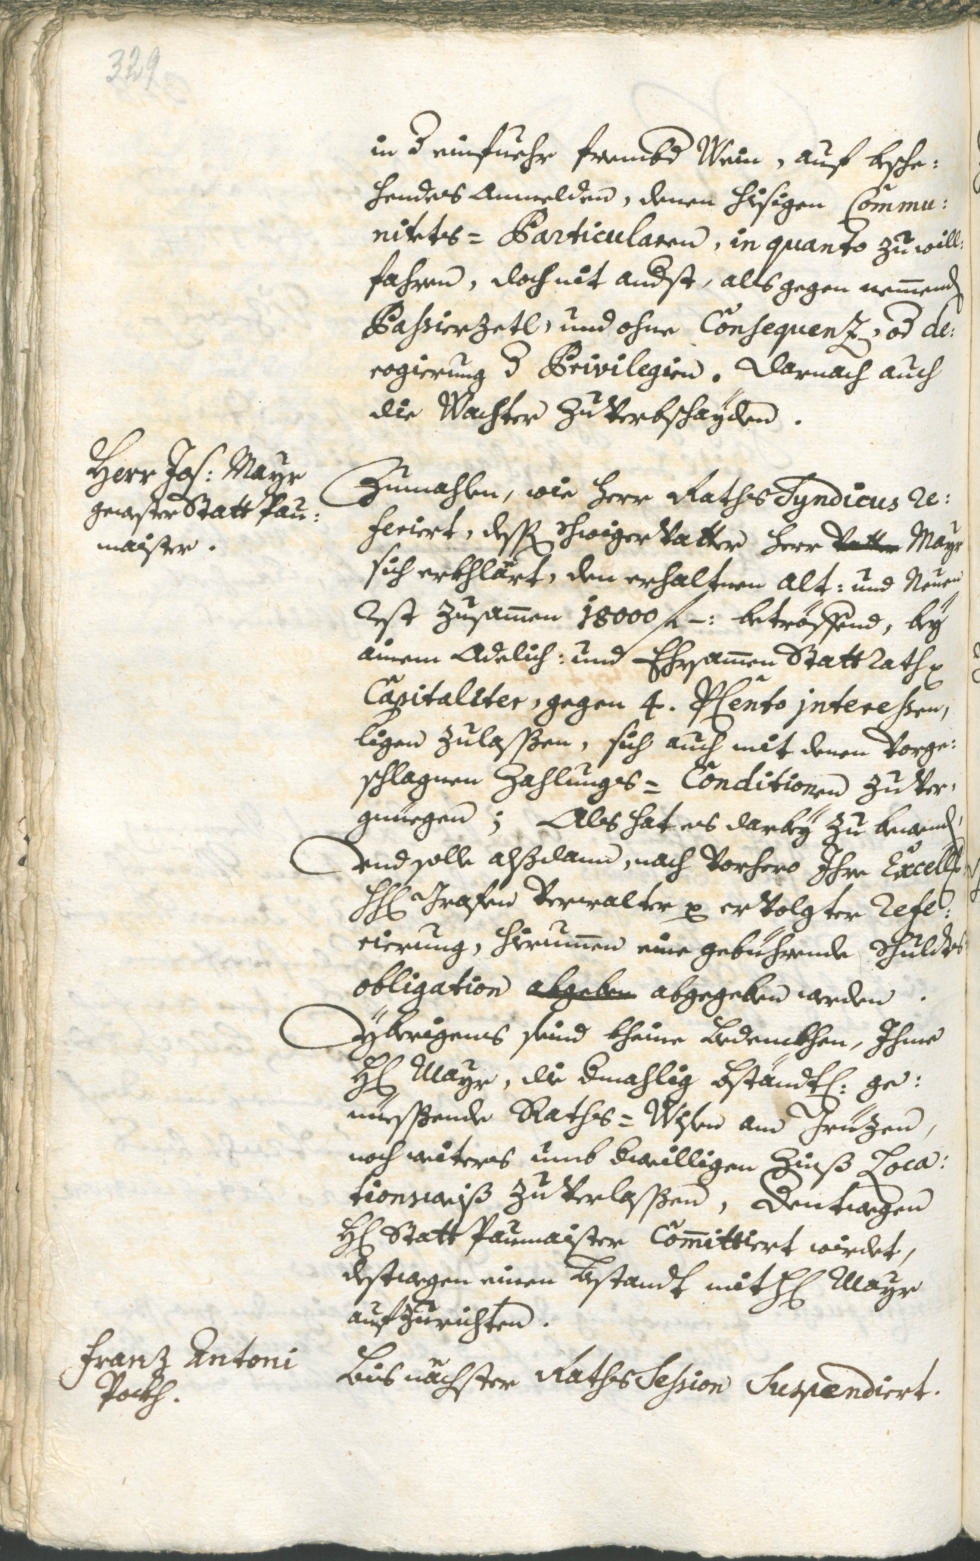 329
in d einfuehr frembd Wein, auf besche:
hendes Anmelden, denen hisigen Commu:
nitets= Particularen, in quanto zu will:
fahren, doch nit anderst, als gegen nemmend
Passierzetl, und ohne Consequenz, od de:
rogierung d Privilegien. Darnach auch
die Wachter zu verbschayden.
Herr Jos: Mayr
gewester Statt Pau:
maister.
Zumahlen, wie Herr Raths Syndicus re:
feriert, dess Schwiger Vatter Herr Vatter Mayr
sich erkhlärt, den erhaltnen alt: und Neuen
Rest zusamen 18000 f –: betröffend, bey
ainem Adelich: und Ehrsamen Statt Rath
Capitaliter, gegen 4. PCento interessen,
ligen zulassen, sich auch mit denen vorge:
schlagnen Zahlungs= Conditionen zu ver:
gnüegen; Als hat es darbey zu bewend,
und solle alsdann, nach vorhero Ihro Excell
HH Grafen Verwalter p ervolgter Refe:
rierung, hierumen eine gebührende Schuldts
obligation abgeben abgegeben werden.
Yberigens seind kheine bedenkhen, Ihme
HH Mayr, die dmahlig bständtl: ge:
niessende Raths= Wisen am Griezen,
noch weiters umb dwilligen Zinß Loca:
tionsweiß zu verlassen, Dentwegen
HH Statt Paumaister Committiert wirdet,
destwegen einen bstandt mit HH Mayr
aufzurichten.
Franz Antoni
Pökh.
Bis nächster Raths Session Suspendiert.